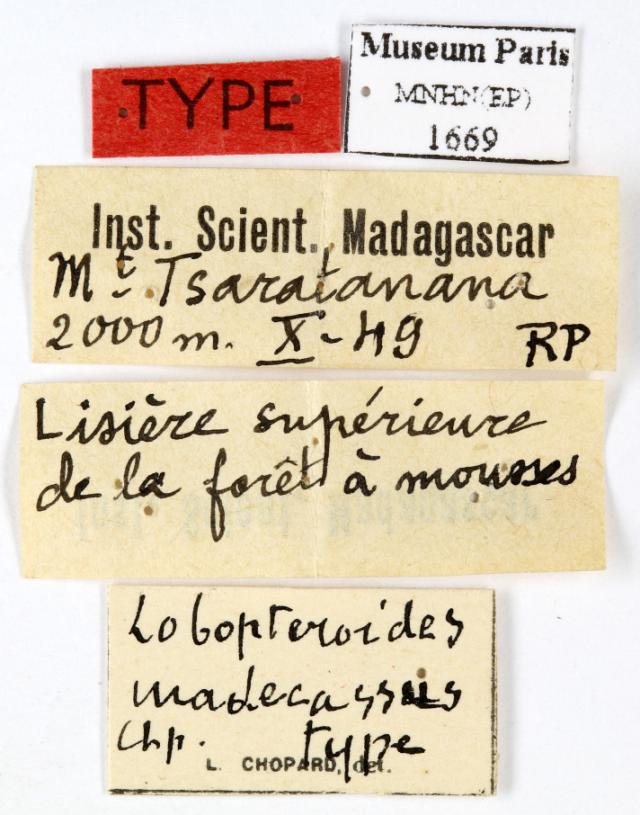 TYPE
Museum Paris
MNHN(EP)
1669
Inst. Scient. Madagascar
Mt Tsaratanana
2000 m. X-49 RP
Lisière supérieure
de la forêt à mousses
Lobopteroides
madecassus
Chp. type
L. CHOPARD, det.